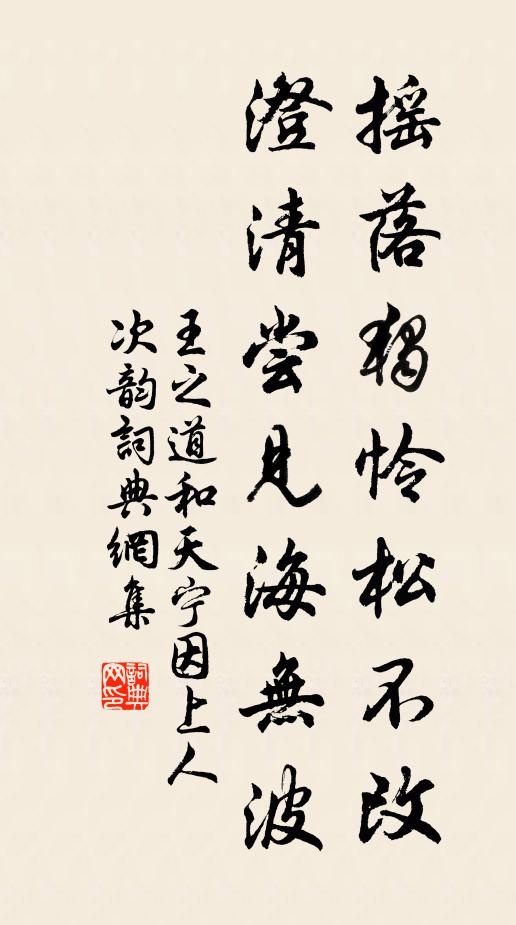 摇落獨怜松不改
澄清尝見海無波
王之道和天宁因上人
次韵詞典網集
詞典
网印